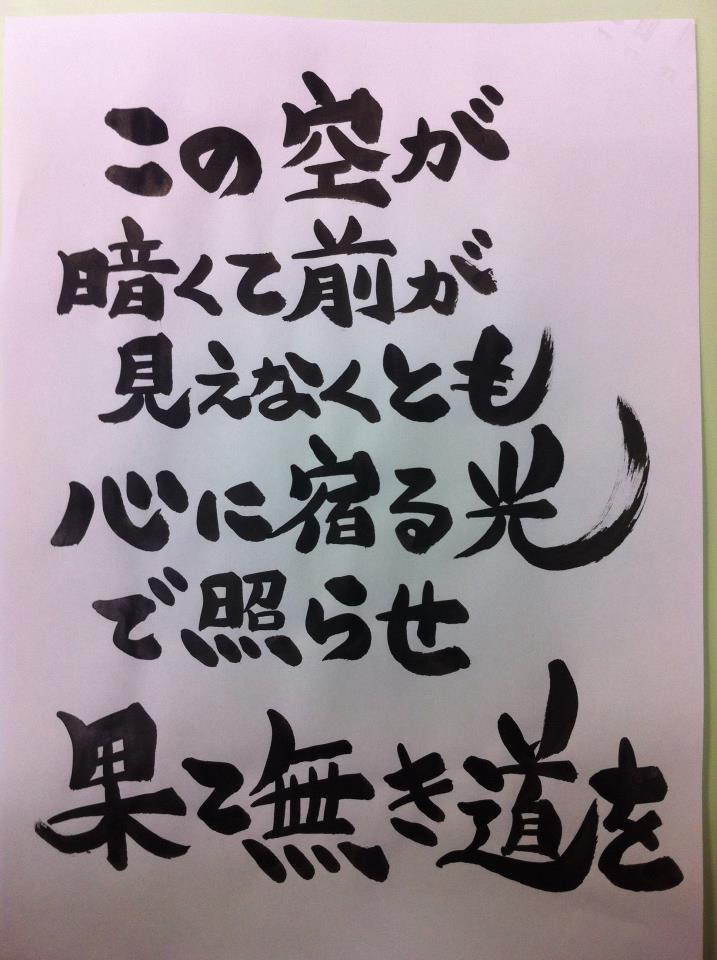 この空が
暗くて前が
見えなくとも
心に宿る光
で照らせ
果て無き道を